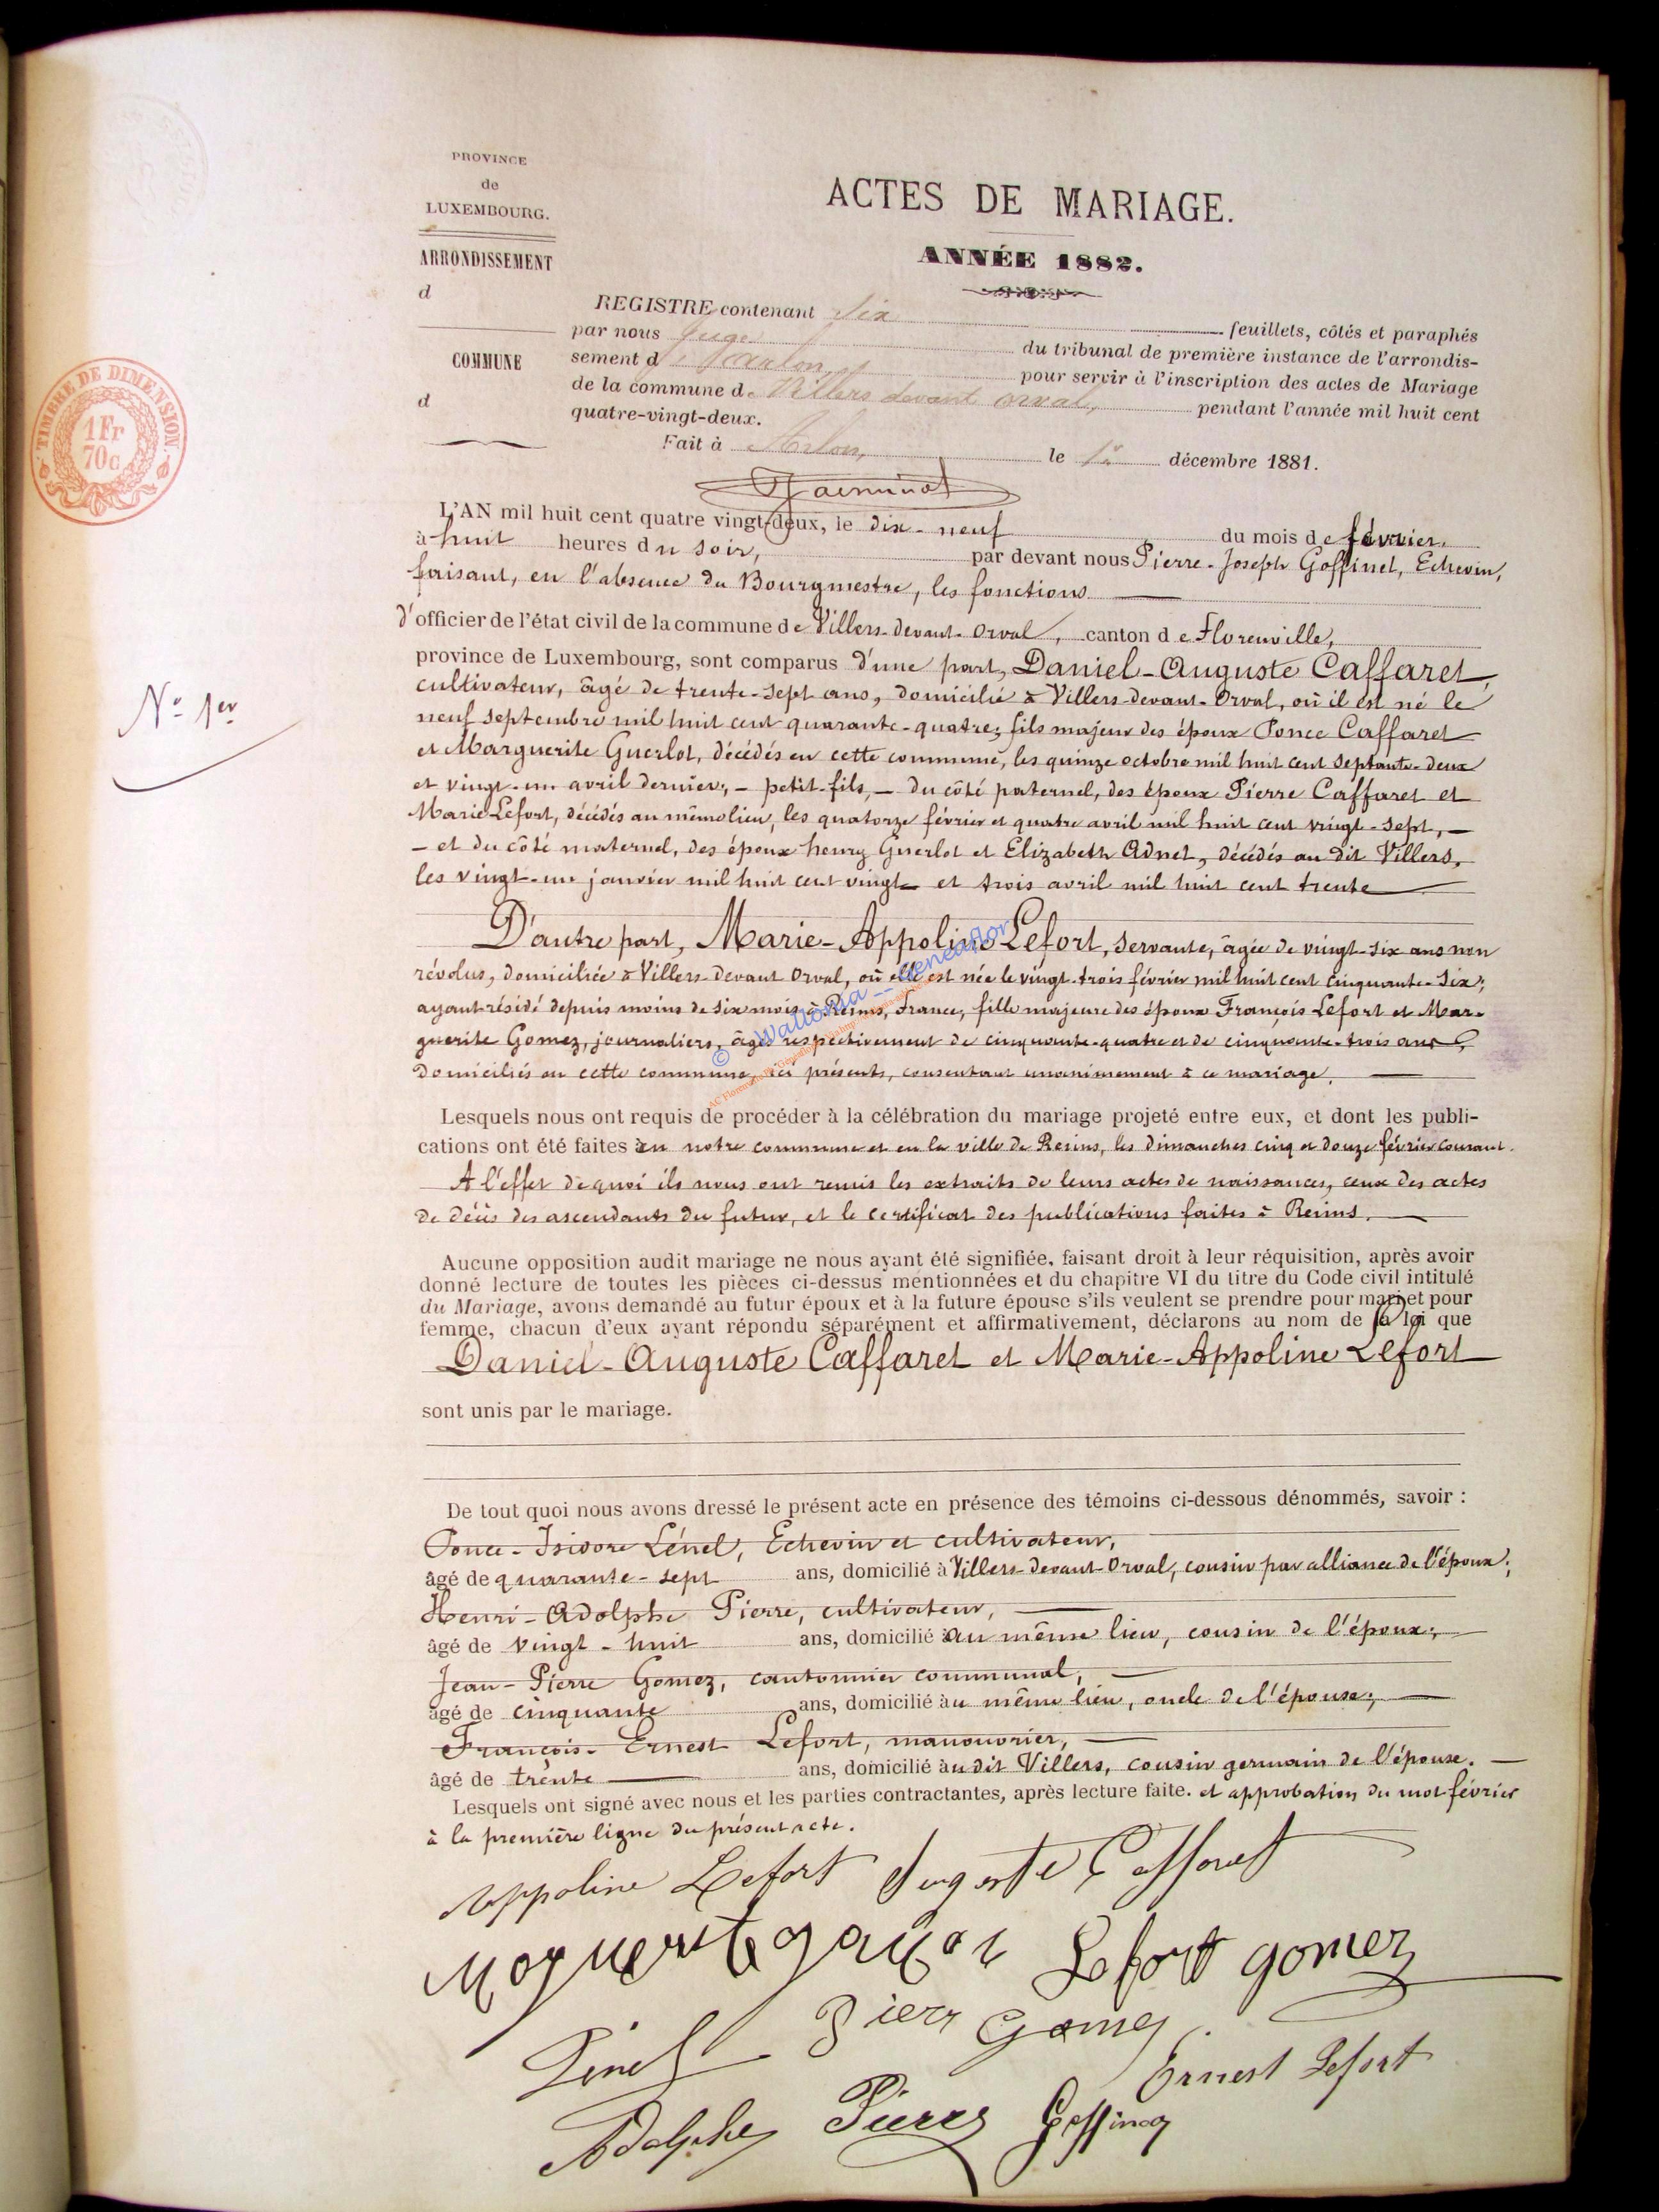 PROVINCE
de
LUXEMBOURG.
ARRONDISSEMENT
d
COMMUNE
d
TIMBRE DE DIMENSION.
1Fr
70c
ACTES DE MARIAGE.
ANNÉE 1882.
REGISTRE contenant six feuillets, côtés et paraphés
par nous juge du tribunal de première instance de l'arrondis-
sement d'Arlon, pour servir à l'inscription des actes de Mariage
de la commune de Villers devant orval, pendant l'année mil huit cent
quatre-vingt-deux.
Fait à Arlon, le 1er décembre 1881.
N° 1er
L'AN mil huit cent quatre vingt-deux, le dix-neuf du mois de février,
à huit heures du soir, par devant nous Pierre-Joseph Goffinet, Echevin,
faisant, en l'absence du Bourgmestre, les fonctions
d'officier de l'état civil de la commune de Villers-devant-Orval, canton de Florenville,
province de Luxembourg, sont comparus d'une part, Daniel-Auguste Caffaret,
cultivateur, âgé de trente-sept ans, domicilié à Villers-devant-Orval, où il est né le
neuf septembre mil huit cent quarante-quatre; fils majeur des époux Ponce Caffaret
et Marguerite Guerlot, décédés en cette commune, les quinze octobre mil huit cent septante-deux
et vingt-un avril dernier; - petit-fils, - du côté paternel, des époux Pierre Caffaret et
Marie Lefort, décédés au même lieu, les quatorze février et quatre avril mil huit cent vingt-sept, -
- et du côté maternel, des époux henry Guerlot et Elizabeth Adnet, décédés au dit Villers,
les vingt-un janvier mil huit cent vingt et trois avril mil huit cent trente
D'autre part, Marie-Appoline Lefort, servante, âgée de vingt-six ans non
révolus, domiciliée à Villers-devant Orval, où elle est née le vingt-trois février mil huit cent cinquante-six;
ayant résidé depuis moins de six mois à Reims, France, fille majeure des époux François Lefort et Mar-
guerite Gomez, journaliers, âgés respectivement de cinquante-quatre et de cinquante-trois ans,
domiciliés en cette commune, ici présents, consentant unanimement à ce mariage.
Lesquels nous ont requis de procéder à la célébration du mariage projeté entre eux, et dont les publi-
cations ont été faites en notre commune et en la ville de Reims, les dimanches cinq et douze février courant.
A l'effet de quoi ils nous ont remis les extraits de leurs actes de naissances, ceux des actes
de décès des ascendants du futur, et le certificat des publications faites à Reims.
Aucune opposition audit mariage ne nous ayant été signifiée, faisant droit à leur réquisition, après avoir
donné lecture de toutes les pièces ci-dessus mentionnées et du chapitre VI du titre du Code civil intitulé
du Mariage, avons demandé au futur époux et à la future épouse s'ils veulent se prendre pour mari et pour
femme, chacun d'eux ayant répondu séparément et affirmativement, déclarons au nom de la loi que
Daniel-Auguste Caffaret et Marie-Appoline Lefort
sont unis par le mariage.
De tout quoi nous avons dressé le présent acte en présence des témoins ci-dessous dénommés, savoir :
Ponce-Isidore Lénel, Echevin et cultivateur,
âgé de quarante-sept ans, domicilié à Villers-devant-Orval, cousin par alliance de l'époux;
Henri-Adolphe Pierre, cultivateur,
âgé de vingt-huit ans, domicilié au même lieu, cousin de l'époux;
Jean-Pierre Gomez, cantonnier communal,
âgé de cinquante ans, domicilié au même lieu, oncle de l'épouse;
François-Ernest Lefort, manouvrier,
âgé de trente ans, domicilié au dit Villers, cousin germain de l'épouse.
Lesquels ont signé avec nous et les parties contractantes, après lecture faite. et approbation du mot février
à la première ligne du présent acte.
Appoline Lefort Auguste Caffaret
Lefort gomez
Pierr Gomez
Ernest Lefort
Adolphe Pierre Goffinet